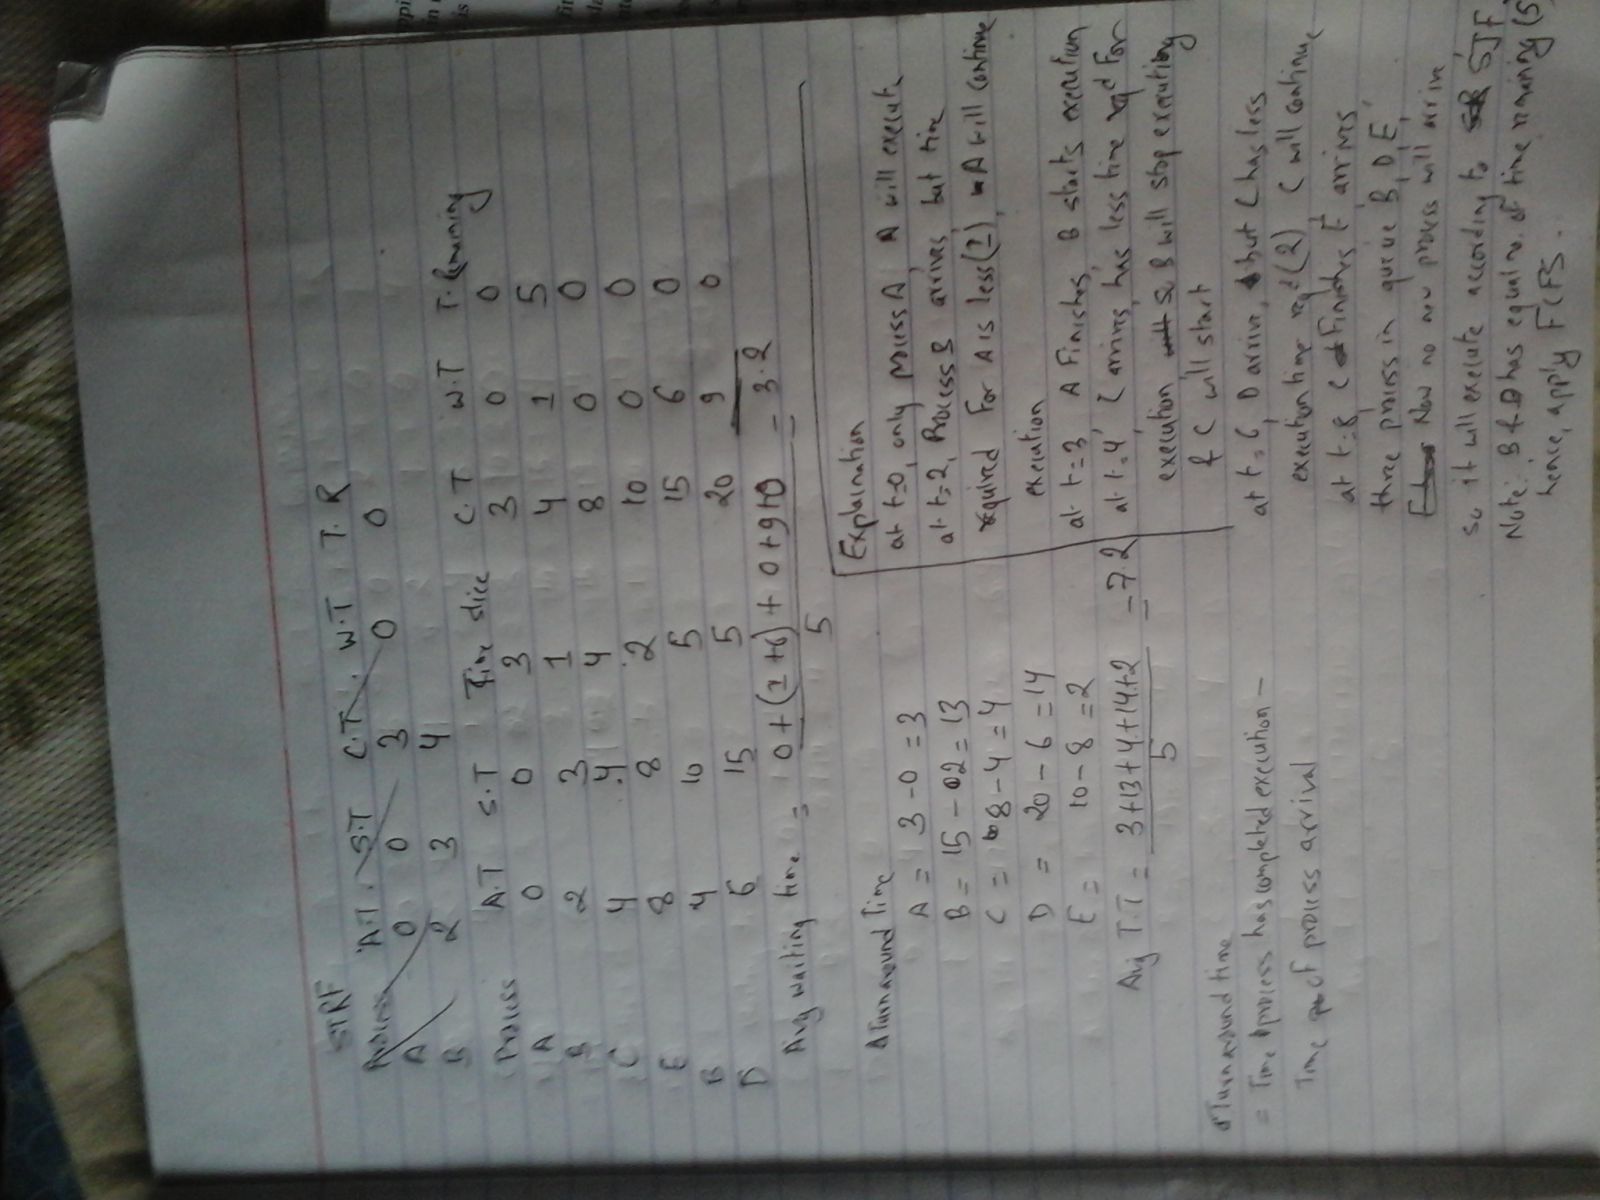 STRF
Process A.T. S.T C.T. W.T T.R
A 0 0 3 0 0
B 2 3 4
Process A.T S.T Time slice C.T W.T T.Remaining
A 0 0 3 3 0 0
B 2 3 1 4 1 5
C 4 4 4 8 0 0
E 8 8 2 10 0 0
B 4 10 5 15 6 0
D 6 15 5 20 9 0
Avg waiting time = 0+(1+6)+0+9+0 = 3.2
5
Turnaround Time
A = 3-0 = 3
B = 15-02 = 13
C = 8-4 = 4
D = 20-6 = 14
E = 10-8 = 2
Avg T.T = 3+13+4+14+2 = 7.2
5
Turnaround time
= Time process has completed execution -
Time of process arrival
Explaination
at t=0, only process A, A will execute
at t=2, Process B arrives but time
required for A is less(1), A will continue
execution
at t=3 A Finishes, B starts execution
at t=4, C arrives, has less time reqd For
execution B will stop executiong
& C will start
at t=6, D arrive, but C has less
execution time reqd (2) C will continue
at t=8, C Finishes E arrives
three process in queue B, D, E,
Now no new process will arrive
so it will execute according to SJF
Note: B & D has equal no. of time remaining (5)
hence, apply FCFS.